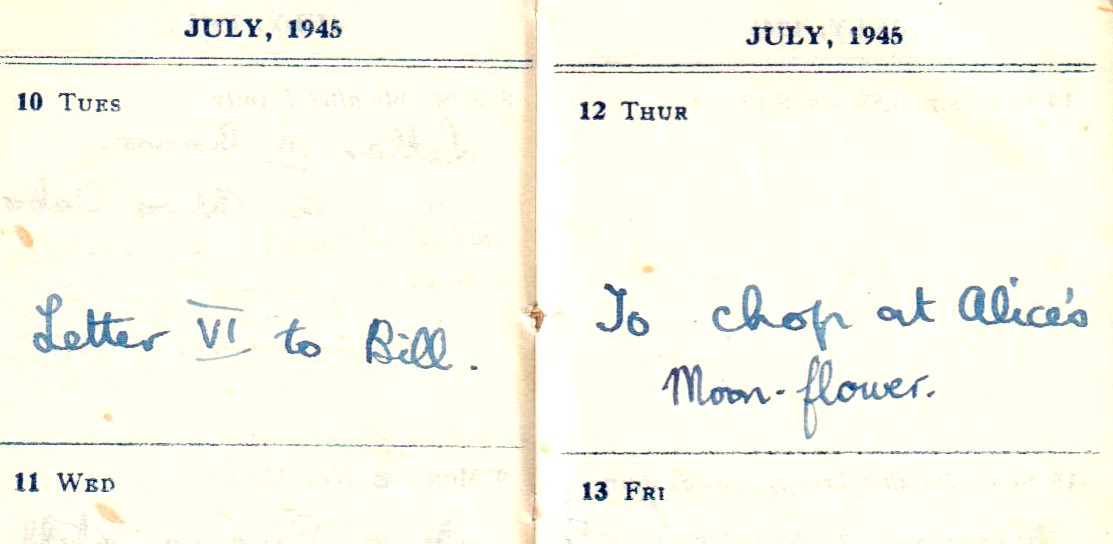 JULY, 1945
10 TUES
Letter VI to Bill.
11 WED
JULY, 1945
12 THUR
To chop at Alice's
Moon-flower.
13 FRI